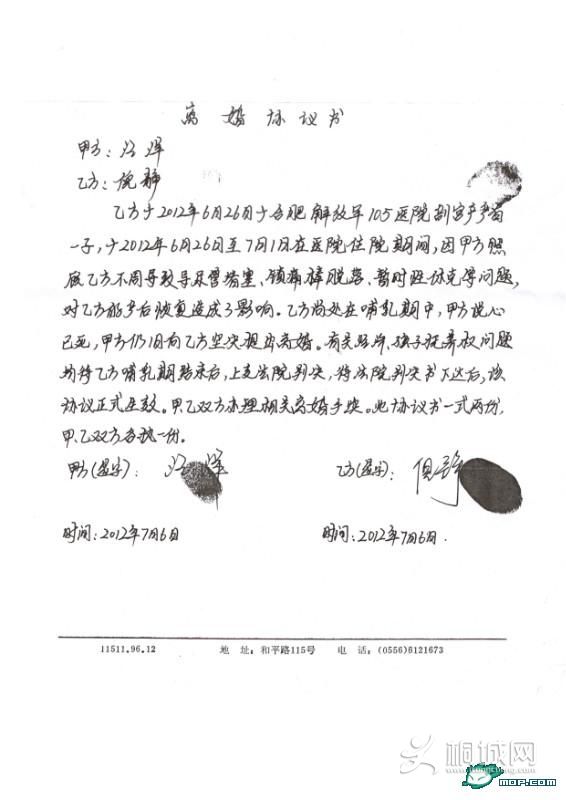 离婚协议书
甲方：汪洋
乙方：倪静
乙方于2012年6月26日于合肥解放军105医院剖宫产产
一子，于2012年6月26日至7月1日在医院住院期间，因甲方照
顾乙方不周导致导尿管堵塞、镇痛棒脱落、暂时性休克等问题，
对乙方的产后恢复造成了影响。乙方尚处在哺乳期中，甲方说心
已死，甲方仍旧向乙方坚决提出离婚。有关财产、孩子抚养权问题
均待乙方哺乳期结束后，上交法院判决，待法院判决书下达后，该
协议正式生效。甲乙双方办理相关离婚手续。此协议书一式两份，
甲、乙双方各执一份。
甲方(签字)： 乙方(签字)：倪静
时间：2012年7月6日 时间：2012年7月6日.
11511.96.12 地 址：和平路115号 电 话：(0556)6121673
桐城网
MOP.COM